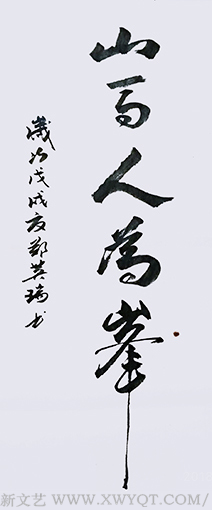 山高人为峯
岁次戊戌夏郑英瑞书
新文艺 WWW.XWYQT.COM/